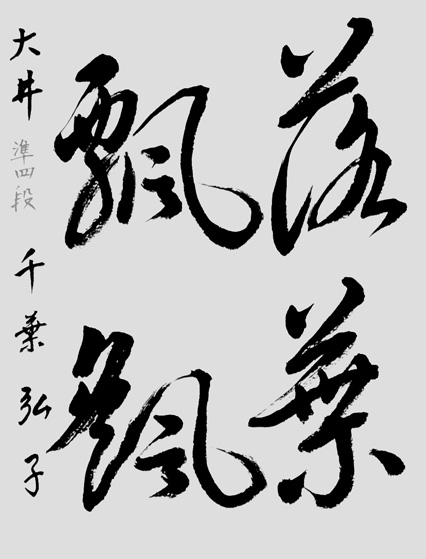 落葉
飄颻
大井 準四段 千葉弘子